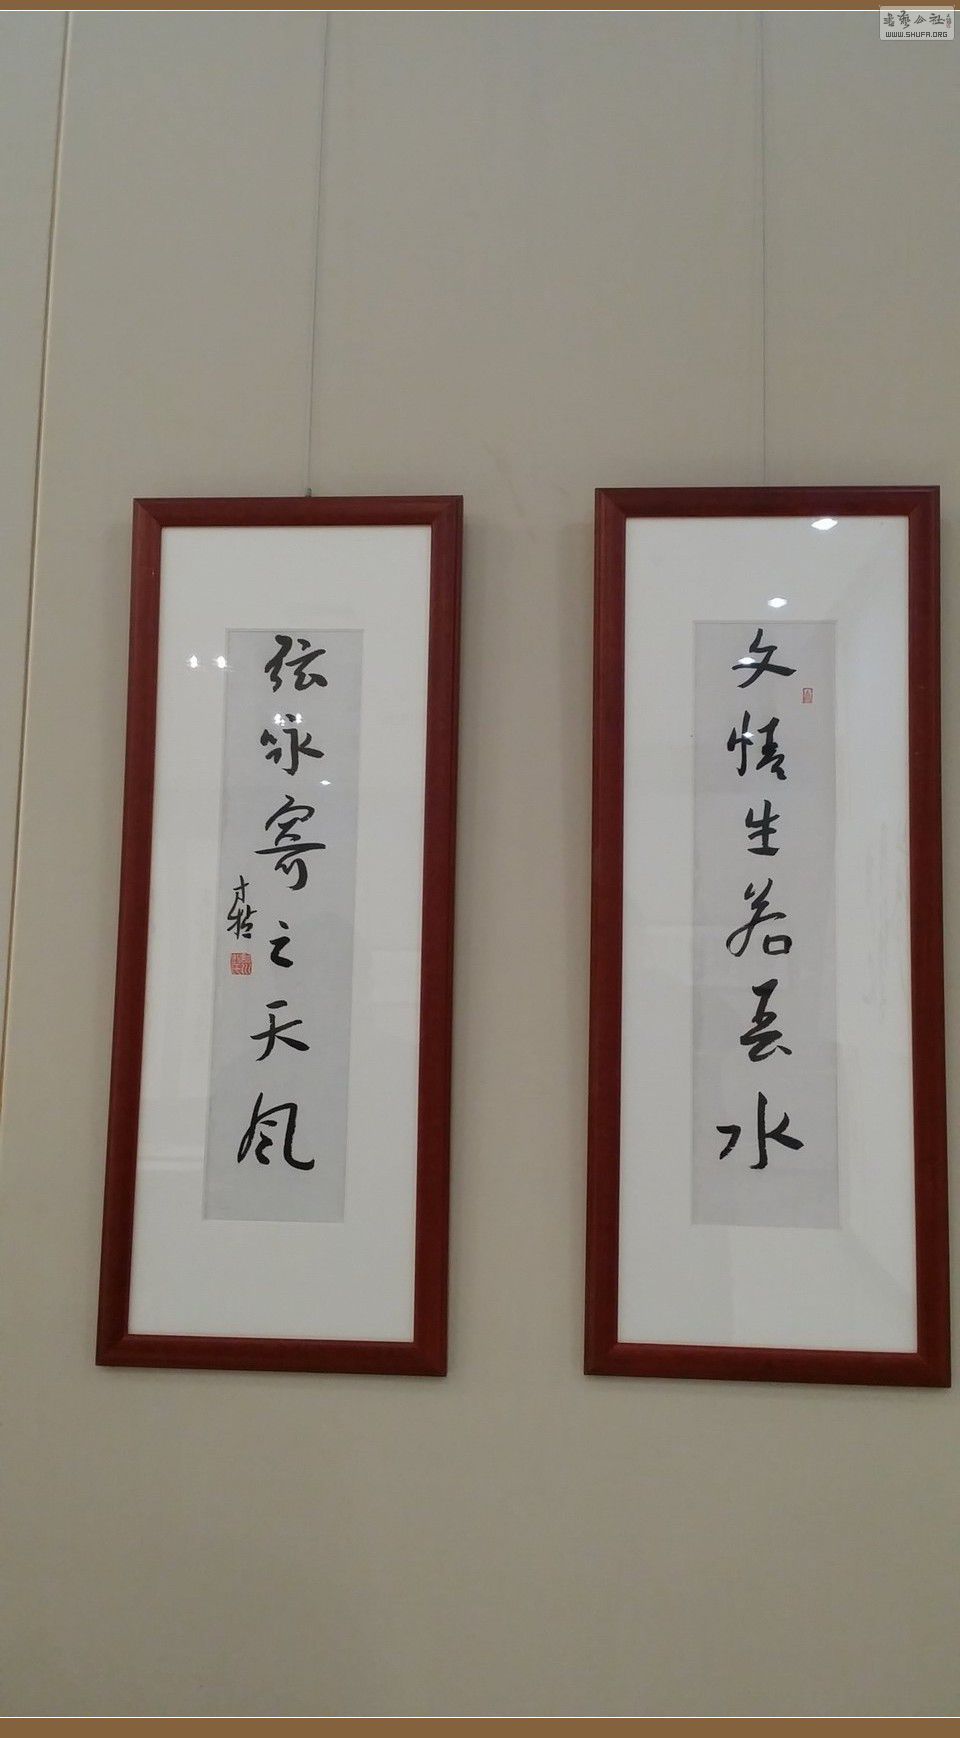 文情生若春水
弦咏寄之天风
书艺公社
WWW.SHUFA.ORG